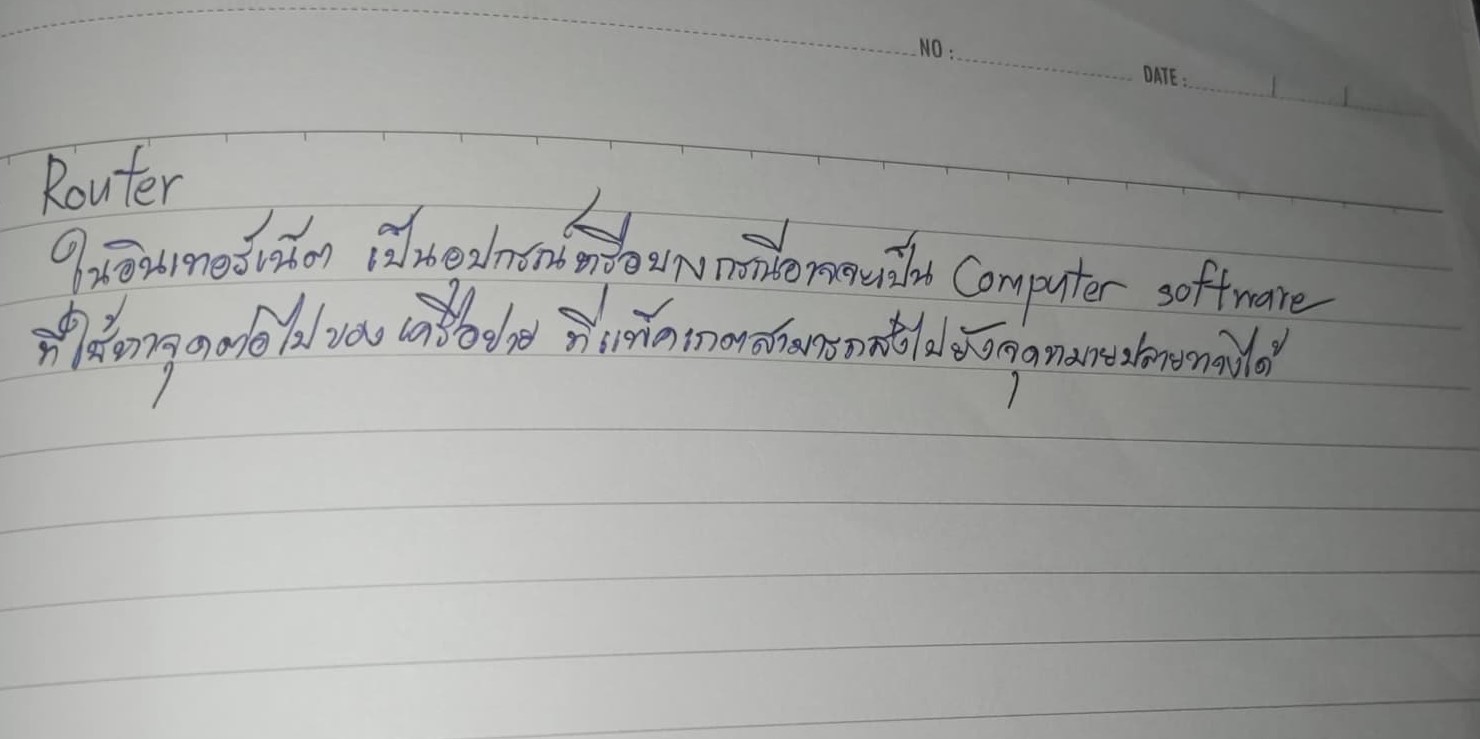 NO :
DATE :
Router
ในอินเทอร์เน็ต เป็นอุปกรณ์หรือบางกรณีอาจจะเป็น Computer software
ที่ใช้หาจุดต่อไปของเครือข่าย ที่แพ็คเกตสามารถส่งไปยังจุดหมายปลายทางได้